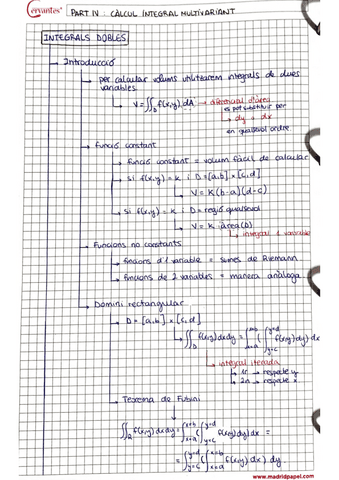 cervantes PART IV : CÀLCUL INTEGRAL MULTIVARIANT
INTEGRALS DOBLES
Introducció
per calcular volums utilitzarem integrals de dues
variables
V = ∬_D f(x,y) dA → diferencial d'àrea
es pot substituir per
dy o dx
en qualsevol ordre
funció constant
funció constant = volum fàcil de calcular
si f(x,y) = k i D = [a,b] × [c,d]
V = K (b-a) (d-c)
si f(x,y) = k i D = regió qualsevol
V = K · àrea (D)
integral 1 variable
Funcions no constants
funcions d'1 variable = sumes de Riemann
funcions de 2 variables = manera anàloga
Domini rectangular
D = [a,b] × [c,d]
∬_D f(x,y) dx dy = ∫_{x=a}^{x=b} ( ∫_{y=c}^{y=d} f(x,y) dy ) dx
integral iterada
1r → respecte y
2n → respecte x
Teorema de Fubini
∬_D f(x,y) dx dy = ∫_{x=a}^{x=b} ( ∫_{y=c}^{y=d} f(x,y) dy ) dx =
= ∫_{y=c}^{y=d} ( ∫_{x=a}^{x=b} f(x,y) dx ) dy
www.madridpapel.com